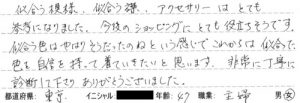 似合う模様、似合う襟、アクセサリーはとても
参考になりました。今後のショッピングにとても役立ちそうです。
似合う色はやはりそうだったのねという感じでこれからは似合った
色を自信を持って着ていきたいと思います。非常に丁寧に
診断して下さりありがとうございました。
都道府県: 東京 イニシャル 年齢: 47 職業: 主婦 男・女